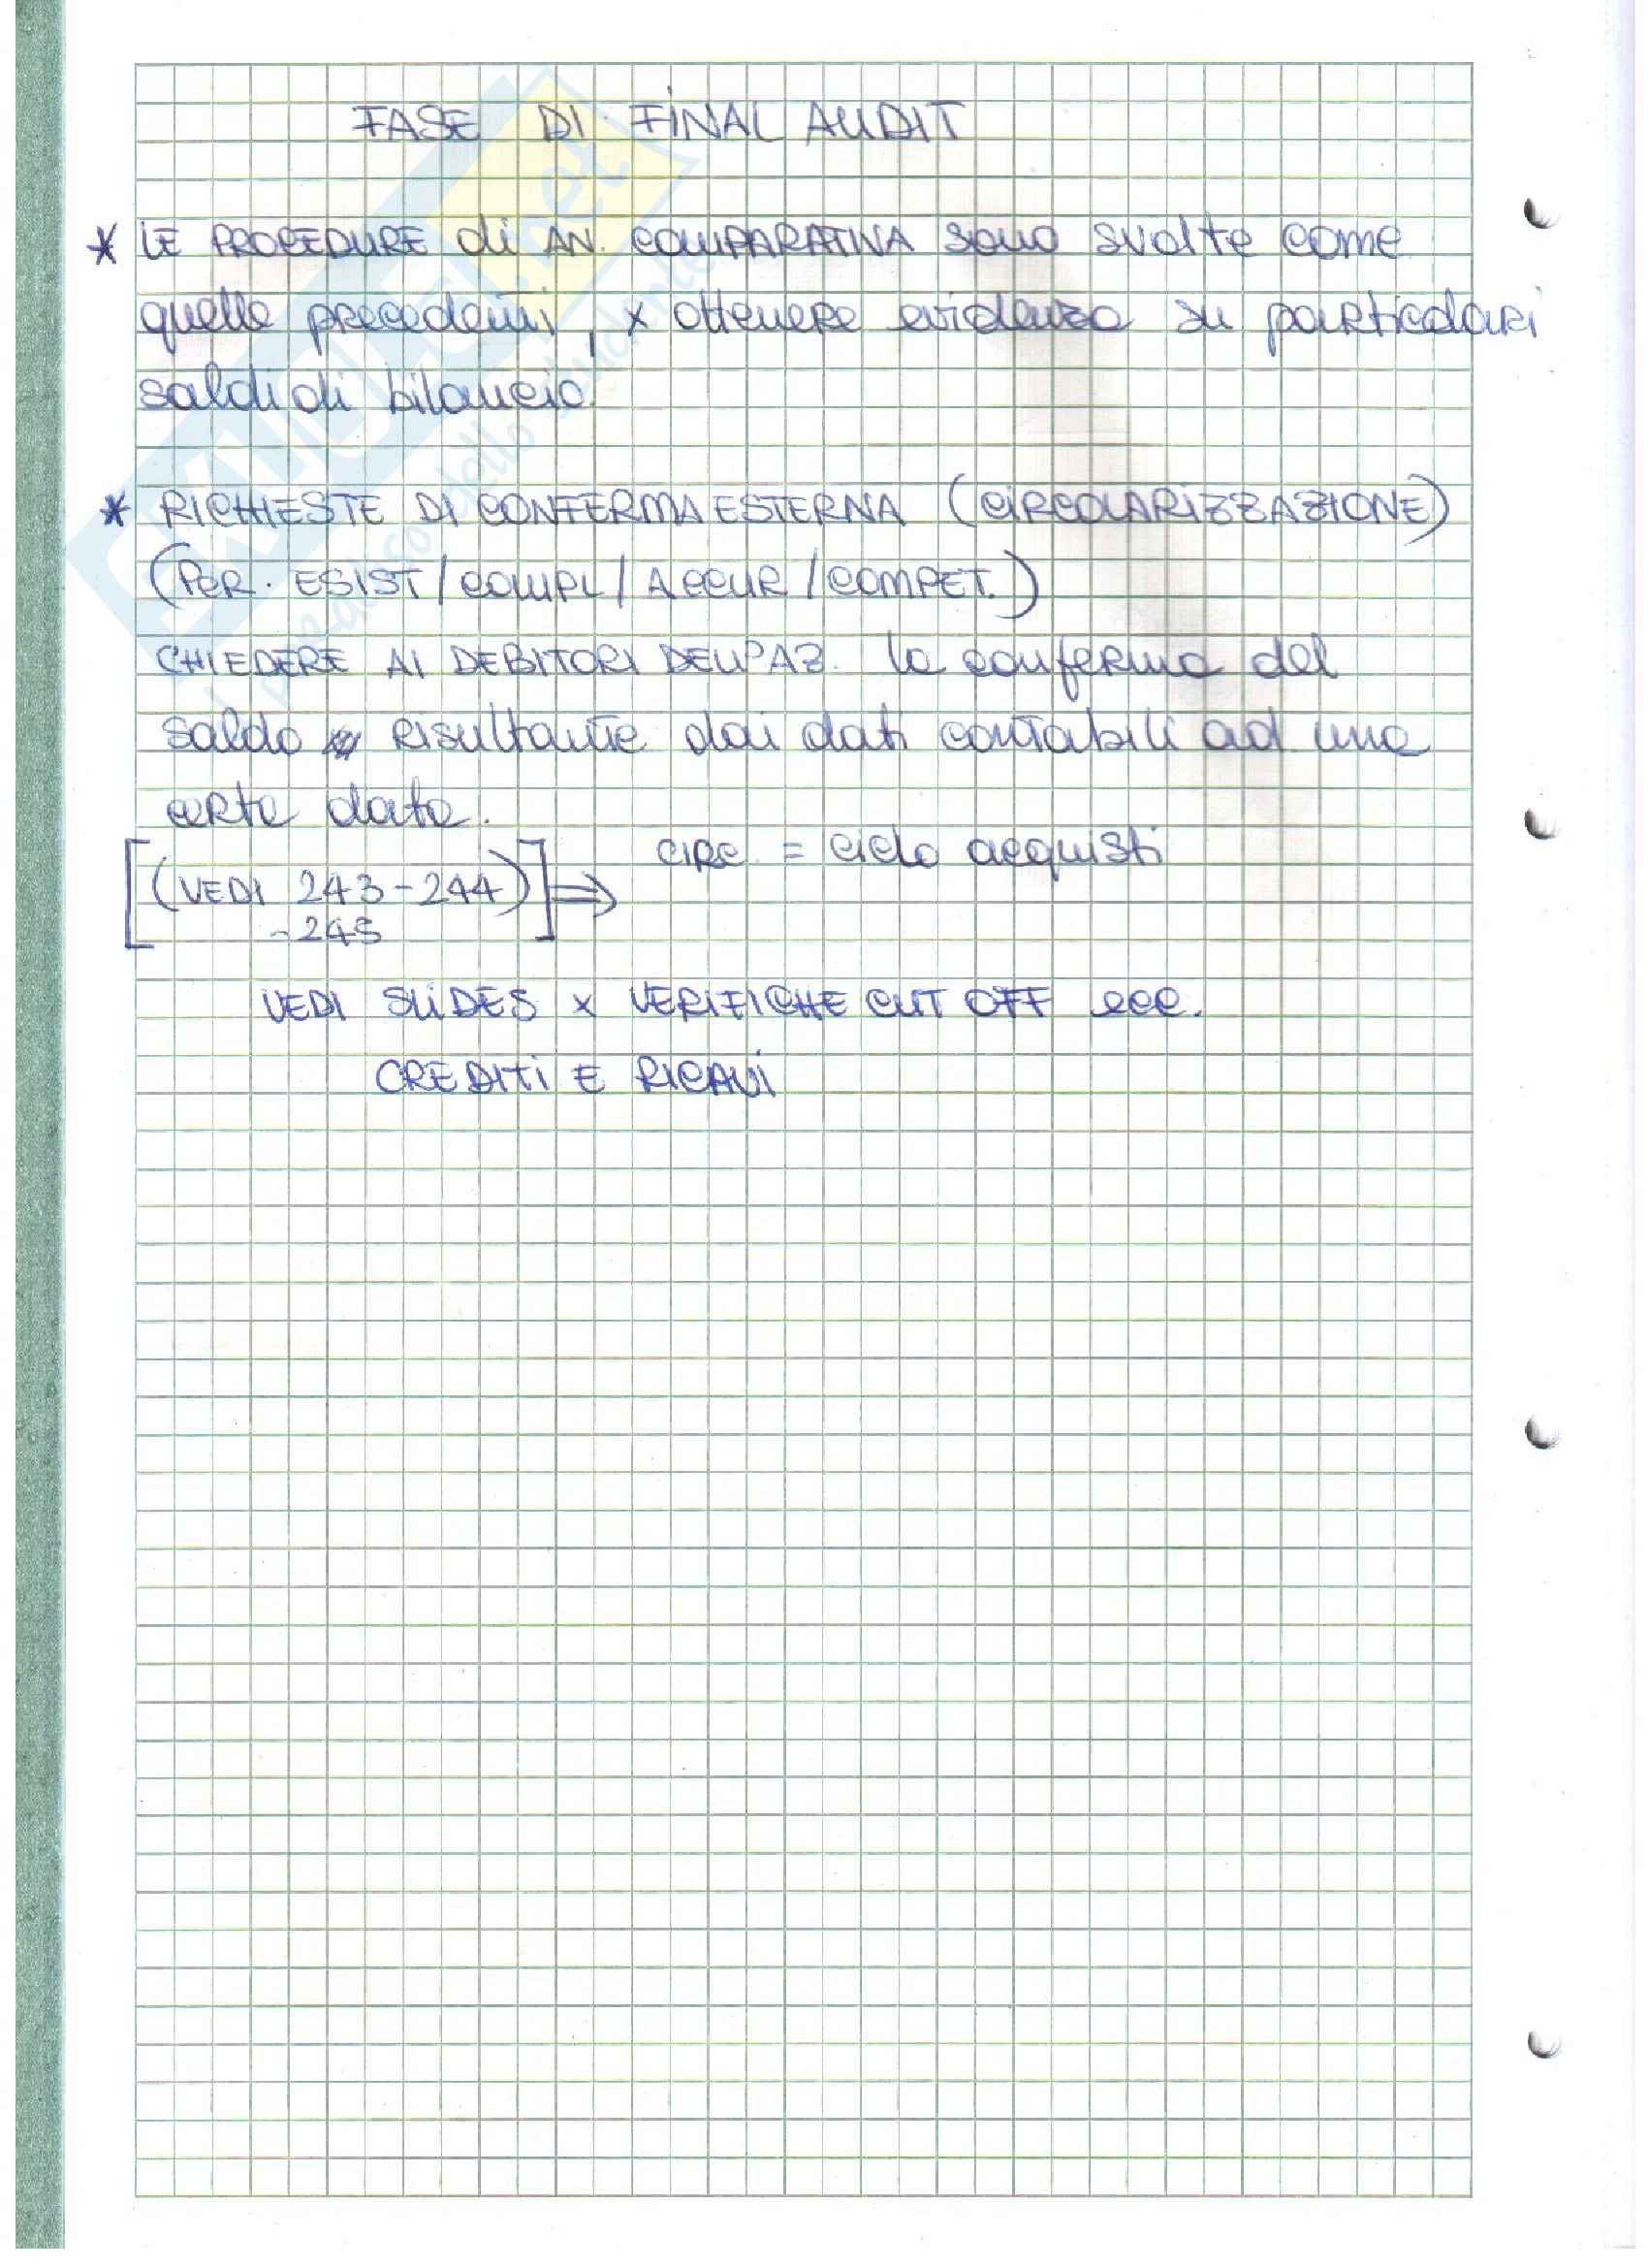 FASE DI FINAL AUDIT
* LE PROCEDURE di AN. COMPARATIVA sono svolte come
quelle precedenti, x ottenere evidenza su particolari
saldi di bilancio.
* RICHIESTE DI CONFERMA ESTERNA (CIRCOLARIZZAZIONE)
(PER. ESIST/COMPL/ACCUR/COMPET.)
CHIEDERE AI DEBITORI DELL'AZ. la conferma del
saldo risultante dai dati contabili ad una
certa data.
circ. = ciclo acquisti
[(VEDI 243-244)] ⇒
-245
VEDI SLIDES x VERIFICHE CUT OFF ecc.
CREDITI E RICAVI